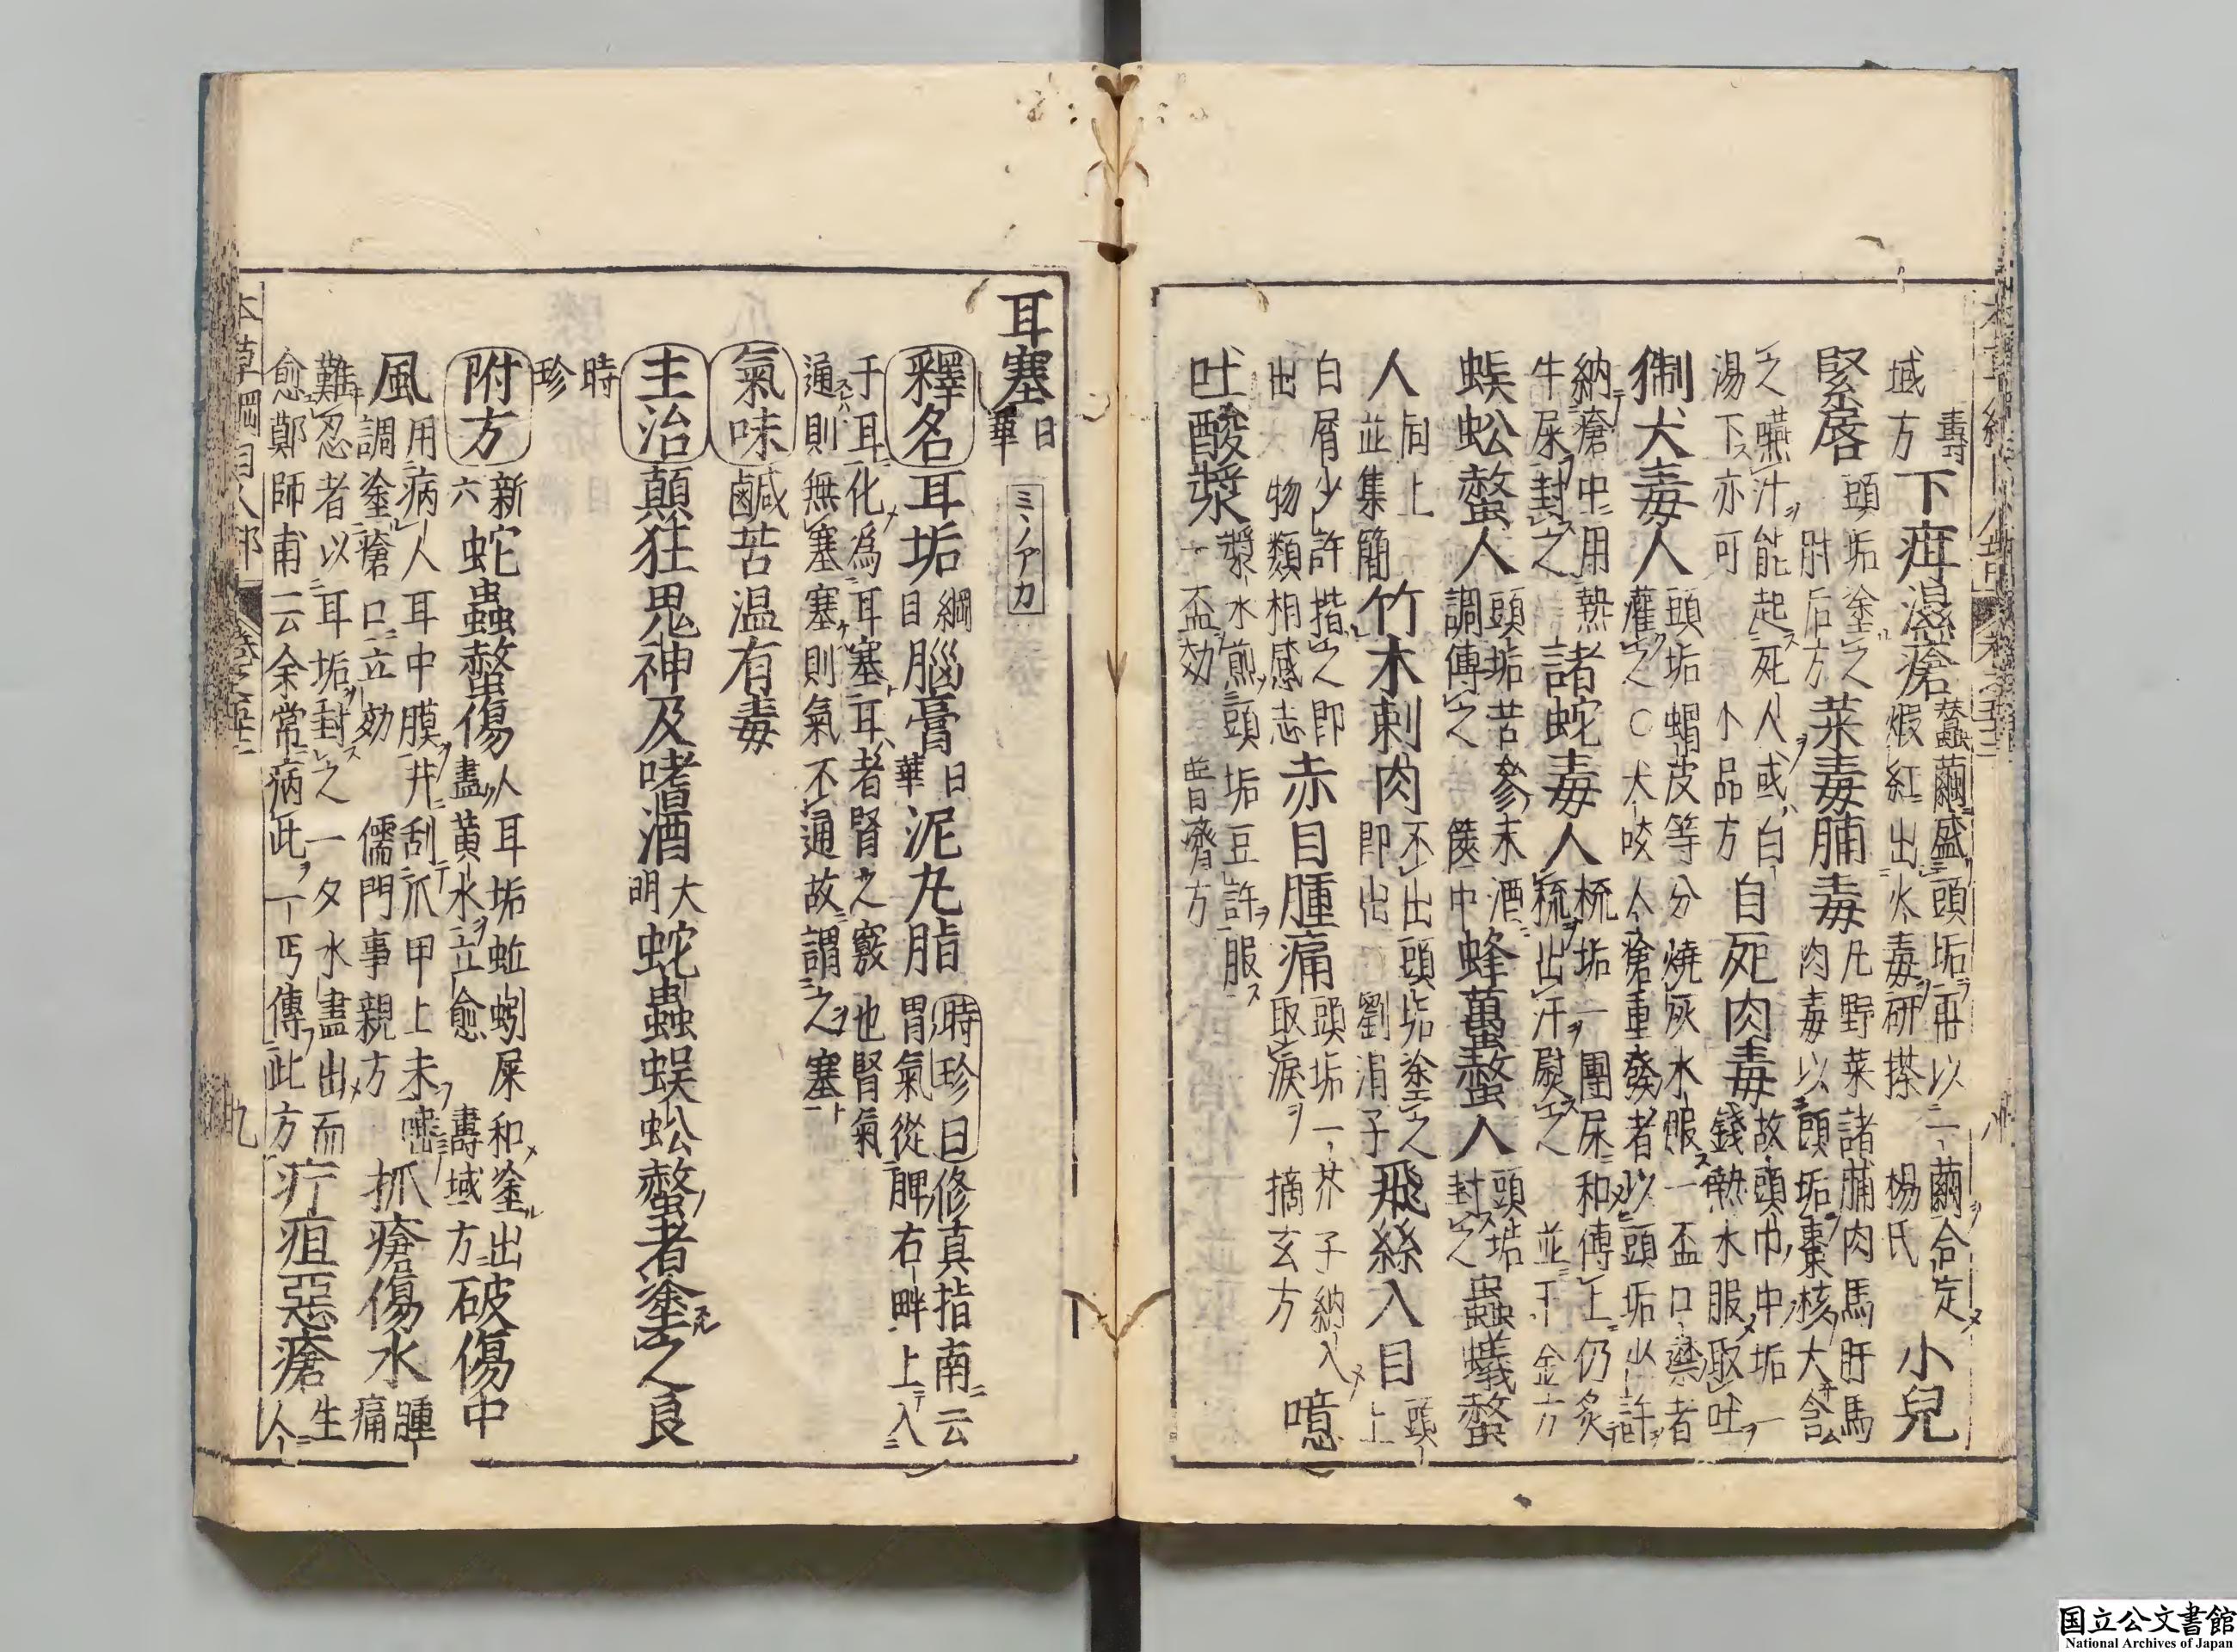 壽域方 下疳濕瘡 蠶繭盛頭垢再以一繭合定煅紅出火毒研搽 楊氏 小兒
緊唇 頭垢塗之 肘后方 菜毒脯毒 凡野菜諸脯肉馬肝馬肉毒以頭垢棗核大含
之嚥汁能起死人或白湯下亦可 小品方 自死肉毒 故頭巾中垢一錢熱水服取吐
猘犬毒人 頭垢蝟皮等分燒灰水服一盃口禁者灌之○犬咬人瘡重發者以頭垢少許
納瘡中用熱牛屎封之 諸蛇毒人 梳垢一團尿和傅上仍炙梳出汗熨之 並千金方
蜈蚣螫人 頭垢苦參末酒調傅之 篋中 蜂蠆螫人 頭垢封之 蟲蟻螫
人 同上並集簡 竹木刺肉 不出頭垢塗之即出 劉涓子 飛絲入目 頭上
白屑少許揩之即出 物類相感志 赤目腫痛 頭垢一芥子納入取淚 摘玄方 噫
吐酸漿 漿水煎頭垢豆許服一盃効 普濟方
耳塞 日華 ミヽノアカ
釋名 耳垢 綱目 腦膏 日華 泥丸脂 時珍曰修真指南云腎氣從脾右畔上入
于耳化爲耳塞耳者腎之竅也腎氣通則無塞塞則氣不通故謂之塞
氣味 鹹苦温有毒
主治 顛狂鬼神及嗜酒 大明 蛇蟲蜈蚣螫者塗之良
時珍
附方 新六 蛇蟲螫傷 人耳垢蚯蚓屎和塗出盡黃水立愈 壽域方 破傷中
風 用病人耳中膜并刮爪甲上末唾調塗瘡口立効 儒門事親方 抓瘡傷水 腫痛
難忍者以耳垢封之一夕水盡出而愈鄭師甫云余常病此一丐傳此方 疔疽惡瘡 生人
本草綱目人部 卷之五十二 九
国立公文書館
National Archives of Japan